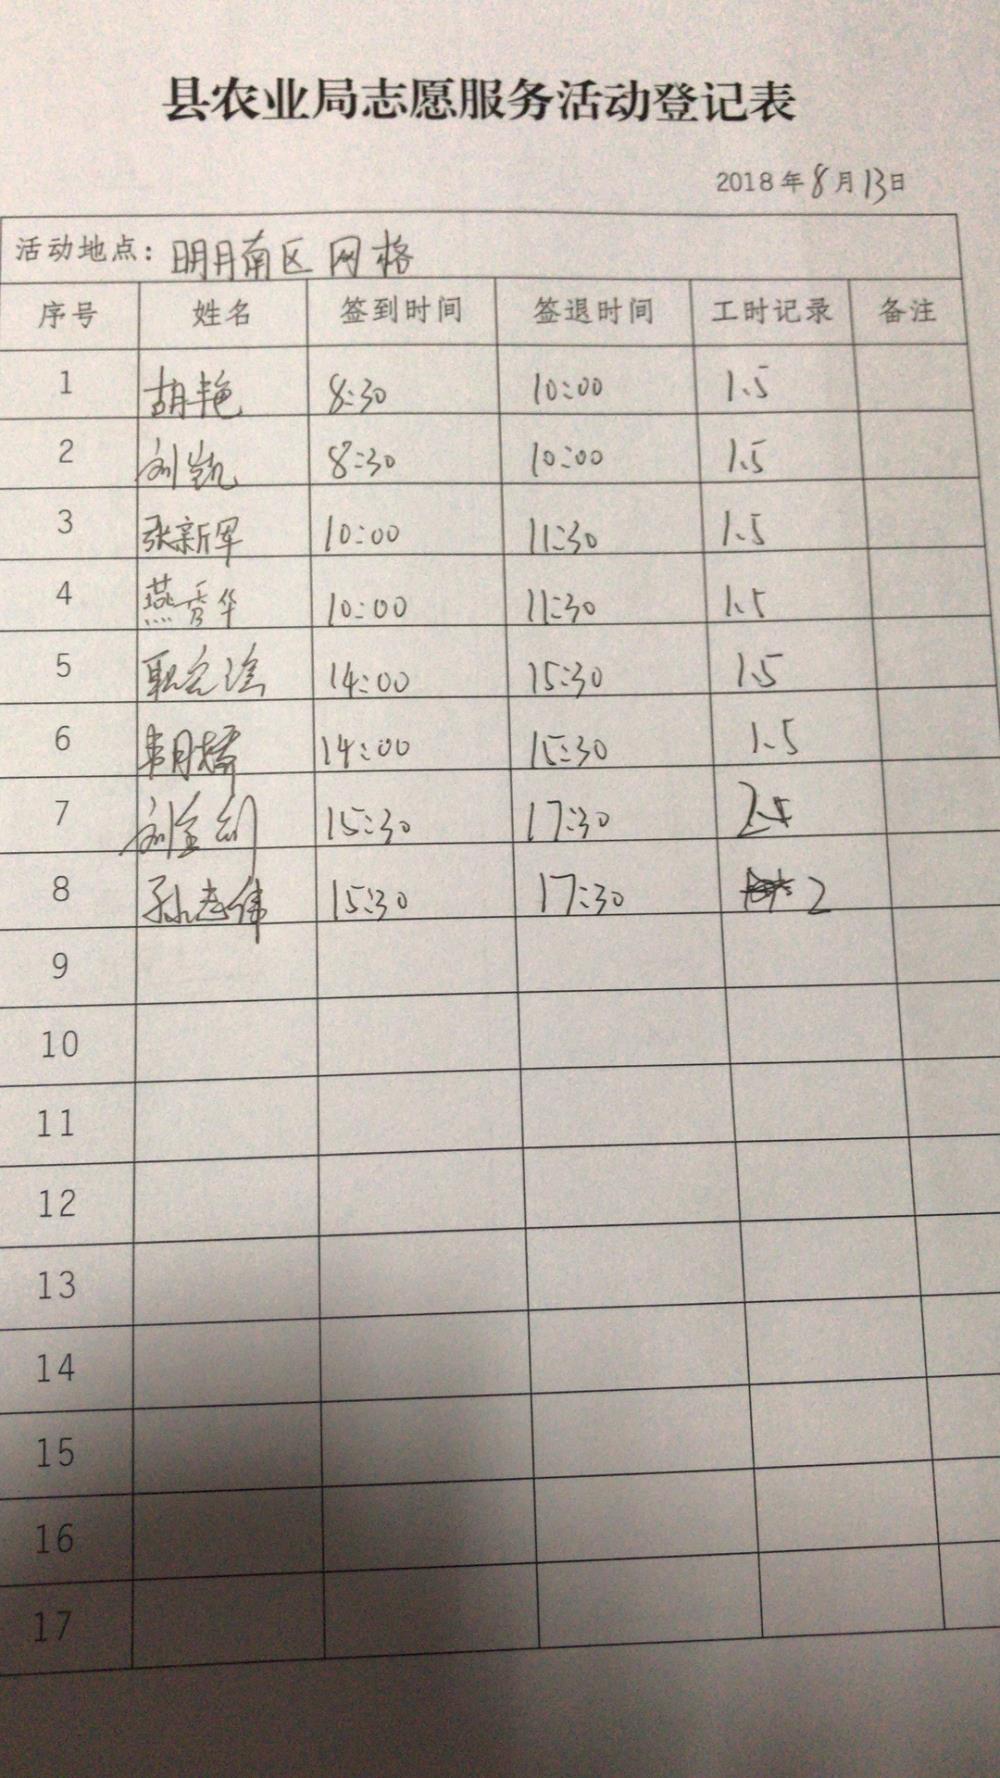 县农业局志愿服务活动登记表
2018年8月13日
活动地点：明月南区网格
序号 姓名 签到时间 签退时间 工时记录 备注
1 胡艳 8:30 10:00 1.5
2 刘凯 8:30 10:00 1.5
3 张新军 10:00 11:30 1.5
4 燕秀华 10:00 11:30 1.5
5 14:00 15:30 1.5
6 14:00 15:30 1.5
7 15:30 17:30
8 孙志伟 15:30 17:30 2
9
10
11
12
13
14
15
16
17